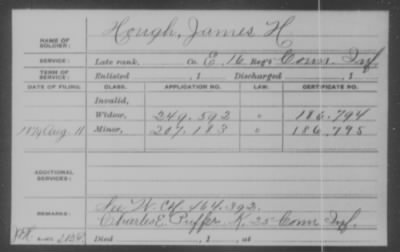 NAME OF SOLDIER: Hough, James H
SERVICE: Late rank, Co. E, 16 Reg't Conn. Inf.
TERM OF SERVICE: Enlisted , 1 Discharged , 1
DATE OF FILING. CLASS. APPLICATION NO. LAW. CERTIFICATE NO.
Invalid,
Widow, 249.592 " 186.794
1879 Aug. 11 Minor, 207.183 " 186.795
ADDITIONAL SERVICES:
See W. Ctf. 464.392.
REMARKS: Charles E. Puffer K. 25 Conn Inf.
Died , 1 , at